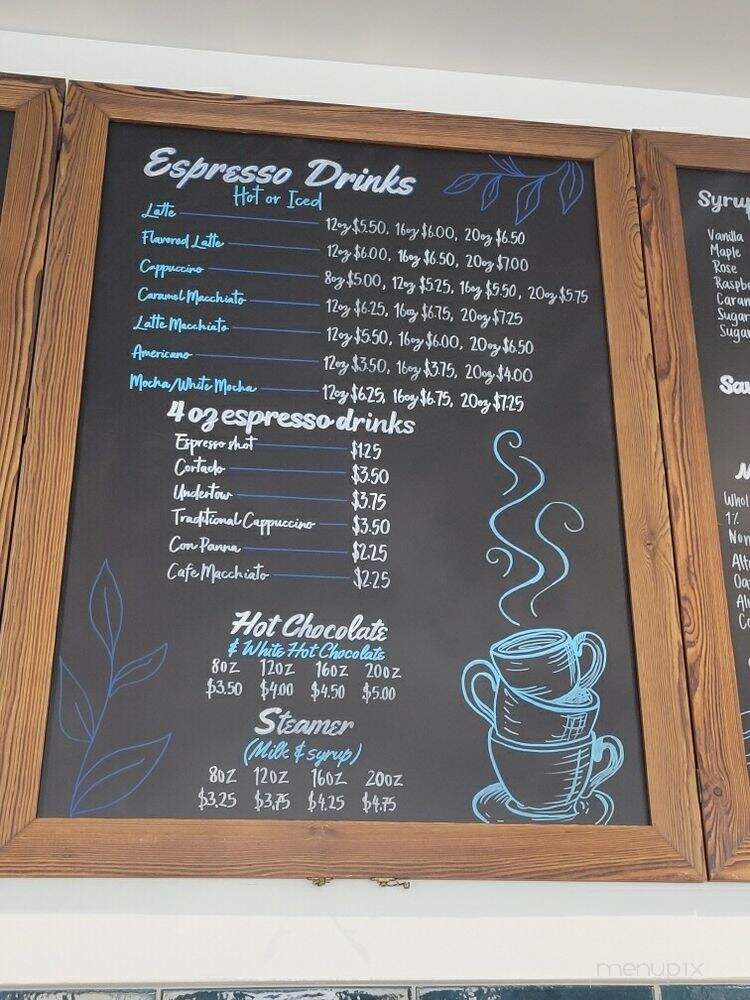 Espresso Drinks
Hot or Iced
Latte 12oz $5.50, 16oz $6.00, 20oz $6.50
Flavored Latte 12oz $6.00, 16oz $6.50, 20oz $7.00
Cappuccino 8oz $5.00, 12oz $5.25, 16oz $5.50, 20oz $5.75
Caramel Macchiato 12oz $6.25, 16oz $6.75, 20oz $7.25
Latte Macchiato 12oz $5.50, 16oz $6.00, 20oz $6.50
Americano 12oz $3.50, 16oz $3.75, 20oz $4.00
Mocha/White Mocha 12oz $6.25, 16oz $6.75, 20oz $7.25
4 oz espresso drinks
Espresso shot $1.25
Cortado $3.50
Undertow $3.75
Traditional Cappuccino $3.50
Con Panna $2.25
Cafe Macchiato $2.25
Hot Chocolate
& White Hot Chocolate
8oz 12oz 16oz 20oz
$3.50 $4.00 $4.50 $5.00
Steamer
(Milk & syrup)
8oz 12oz 16oz 20oz
$3.25 $3.75 $4.25 $4.75
Syrup
Vanilla
Maple
Rose
Raspbe
Caram
Sugar
Sugar
Sau
Whol
1%
Non
Alt
Oa
Al
Co
menupix